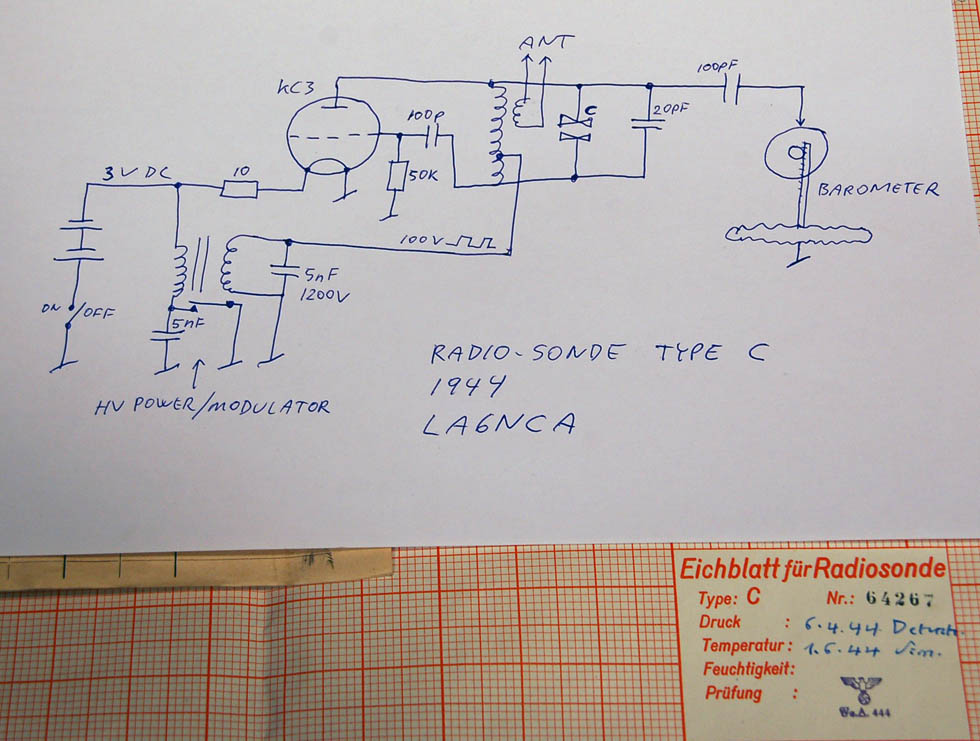 ANT
KC3
100PF
100P
C
20PF
3V DC
10
50K
BAROMETER
100V
5nF
1200V
ON/OFF
5nF
HV POWER/MODULATOR
RADIO-SONDE TYPE C
1944
LA6NCA
Eichblatt für Radiosonde
Type: C Nr.: 64267
Druck : 6.4.44
Temperatur: 1.6.44
Feuchtigkeit:
Prüfung :
444